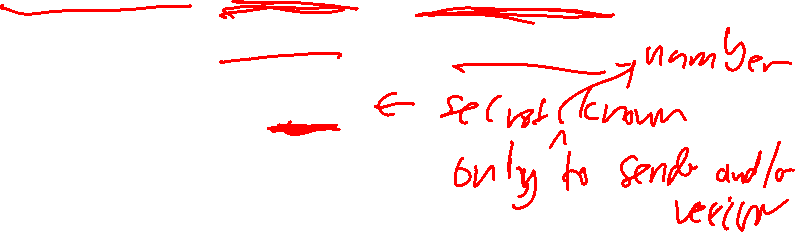 number
← secret known
only to sender and/or
receiver